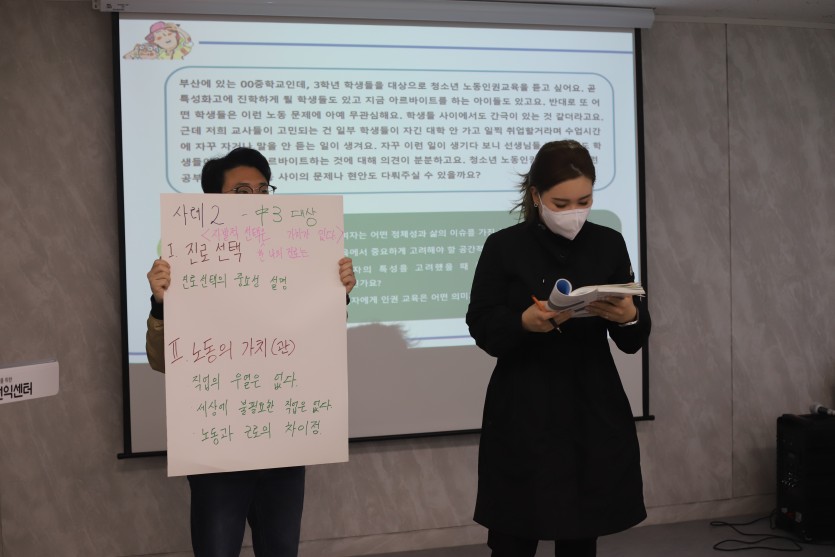 부산에 있는 00중학교인데, 3학년 학생들을 대상으로 청소년 노동인권교육을 듣고 싶어요. 곧
특성화고에 진학하게 될 학생들도 있고 지금 아르바이트를 하는 아이들도 있고요. 반대로 또 어
떤 학생들은 이런 노동 문제에 아예 무관심해요. 학생들 사이에서도 간극이 있는 것 같더라고요.
근데 저희 교사들이 고민되는 건 일부 학생들이 자긴 대학 안 가고 일찍 취업할거라며 수업시간
에 자꾸 자거나 말을 안 듣는 일이 생겨요. 자꾸 이런 일이 생기다 보니 선생님들
생들이 르바이트하는 것에 대해 의견이 분분하고요. 청소년 노동인
공부 사이의 문제나 현안도 다뤄주실 수 있을까요?
여자는 어떤 정체성과 삶의 이슈를 가
에서 중요하게 고려해야 할 공간
자의 특성을 고려했을 때
가요?
자에게 인권 교육은 어떤 의미
사례 2 - 中3 대상
기하지 않다>
I. 진로 선택
진로선택의 중요성 설명
II. 노동의 가치(관)
직업의 우열은 없다.
세상에 불필요한 직업은 없다.
노동과 근로의 차이점
익센터